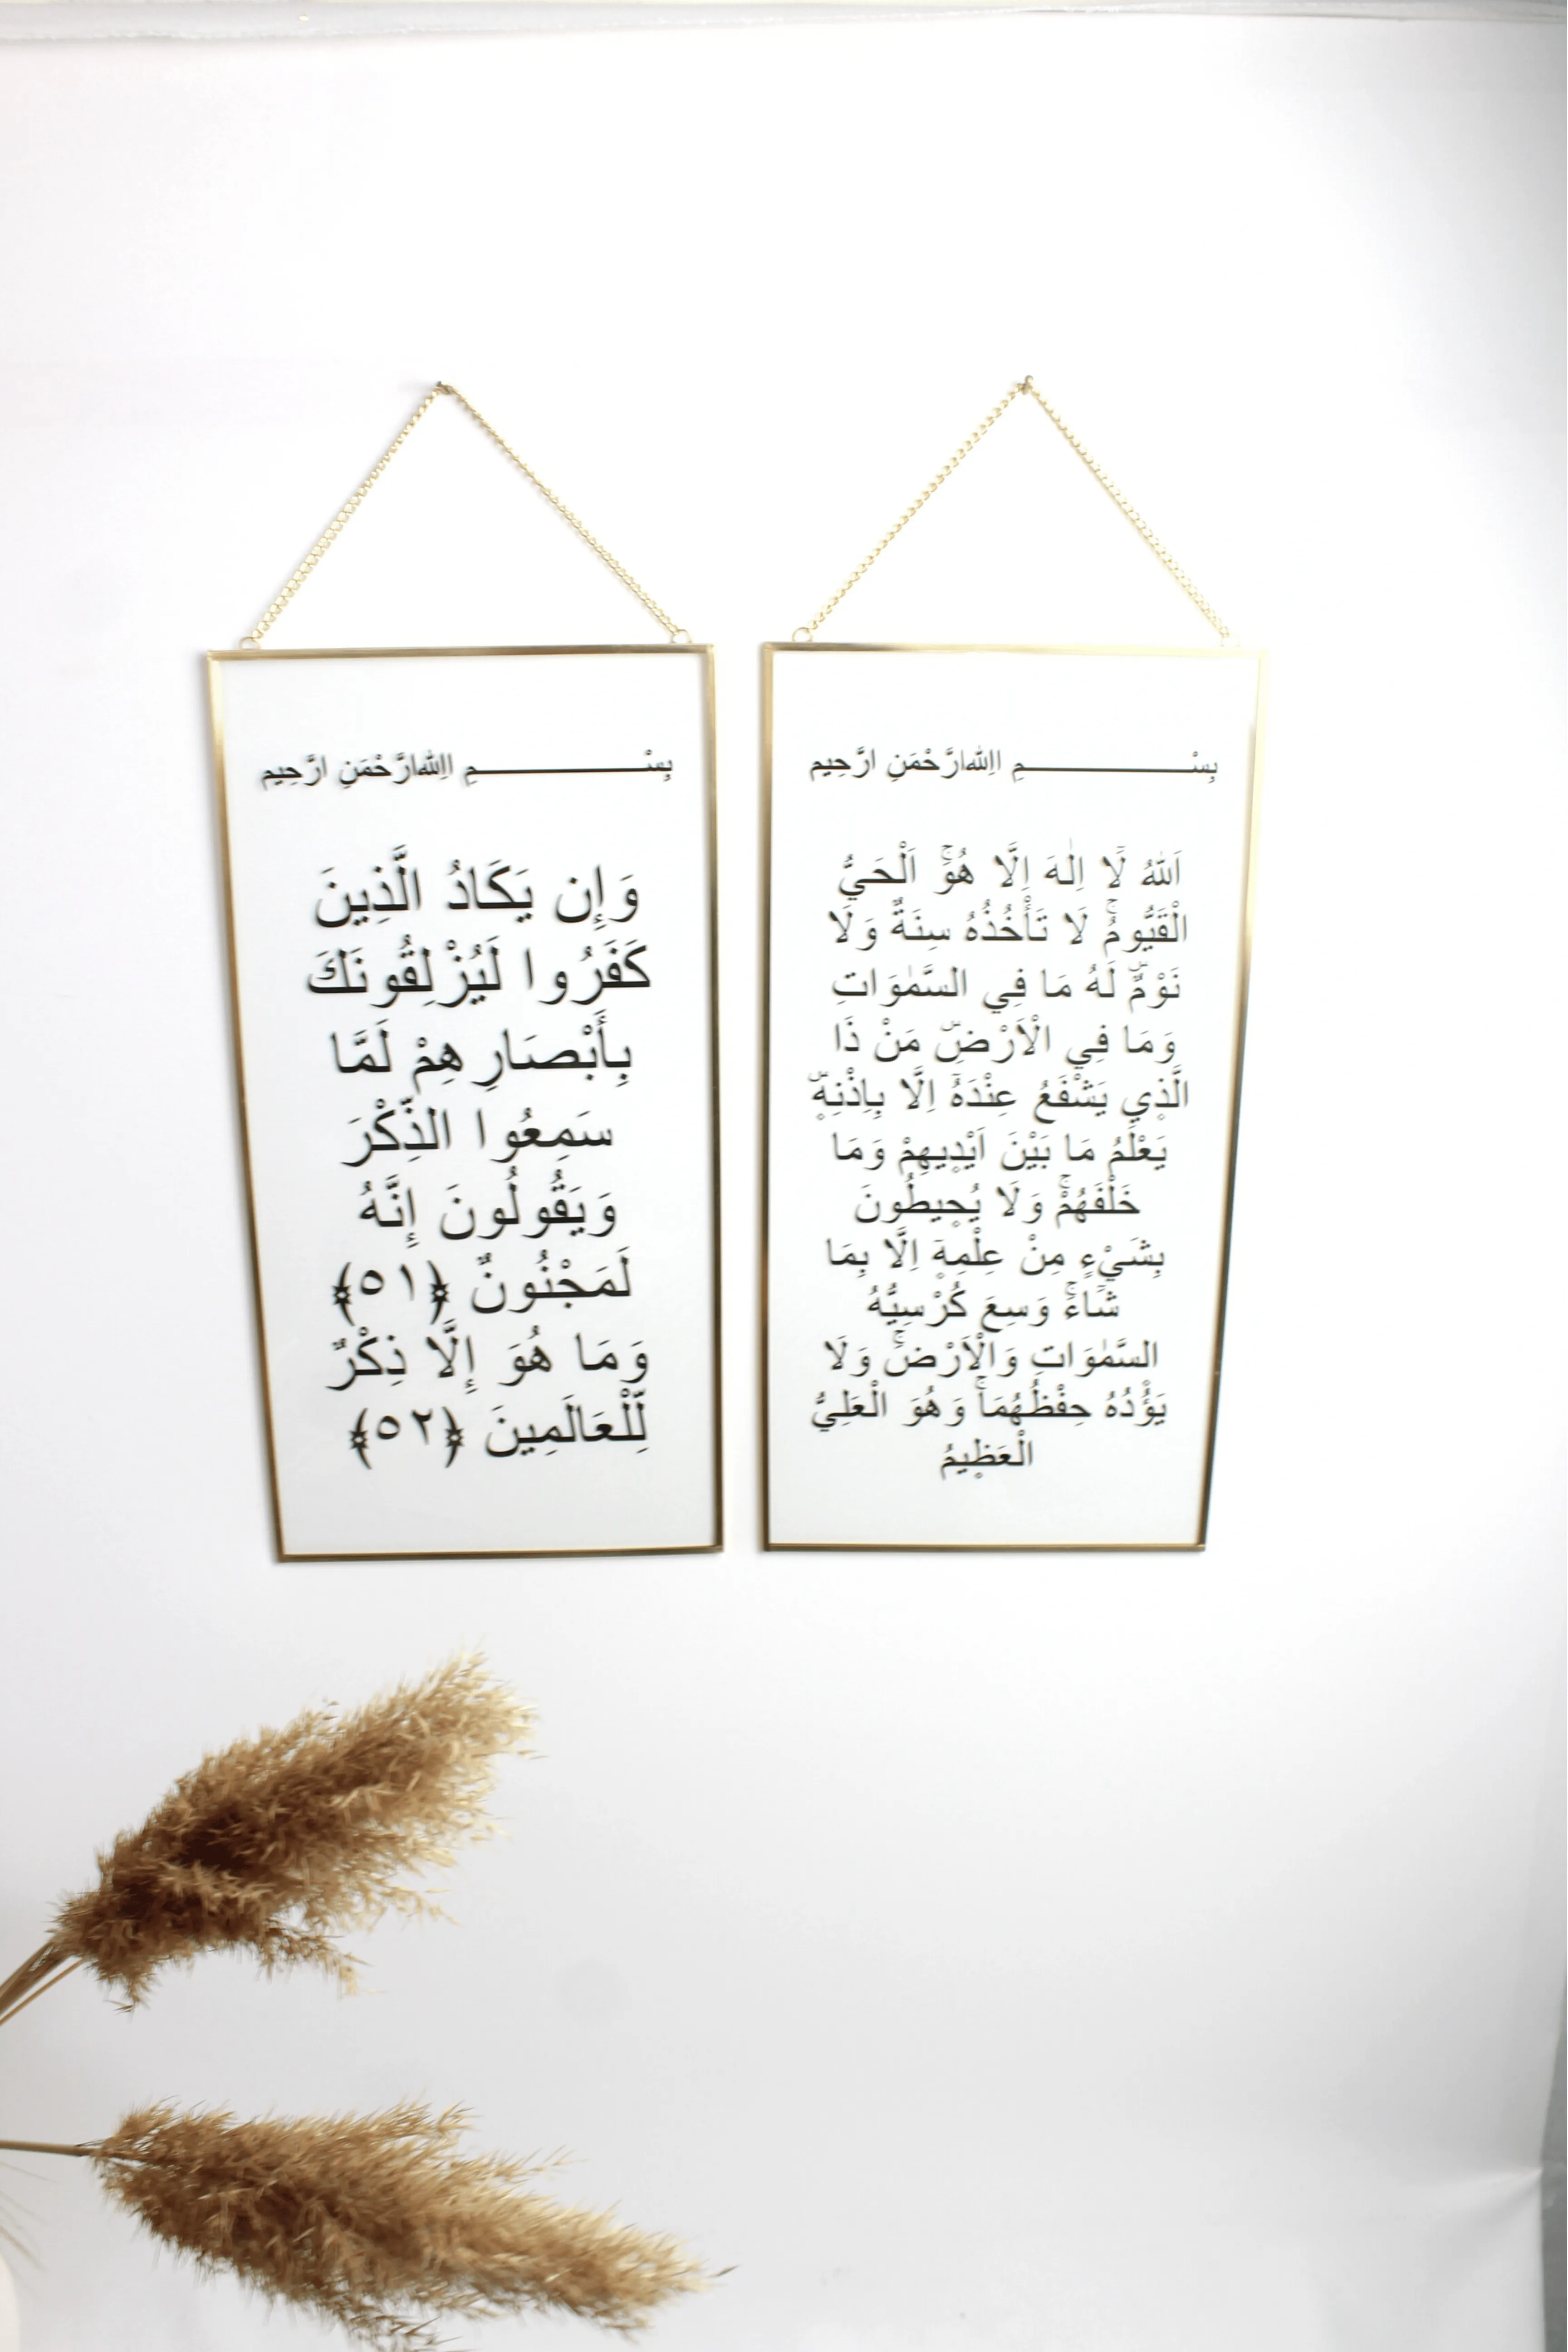 بِسْــــــــــــــــــــمِ اللهِ ارَّحْمَنِ ارَّحِيم
اَللهُ لَٓا اِلٰهَ اِلَّا هُوَۚ اَلْحَيُّ
الْقَيُّومُۚ لَا تَأْخُذُهُ سِنَةٌ وَلَا
نَوْمٌۜ لَهُ مَا فِي السَّمٰوَاتِ
وَمَا فِي الْاَرْضِۜ مَنْ ذَا
الَّذ۪ي يَشْفَعُ عِنْدَهُٓ اِلَّا بِاِذْنِه۪ۜ
يَعْلَمُ مَا بَيْنَ اَيْد۪يهِمْ وَمَا
خَلْفَهُمْۚ وَلَا يُح۪يطُونَ
بِشَيْءٍ مِنْ عِلْمِه۪ٓ اِلَّا بِمَا
شَٓاءَۚ وَسِعَ كُرْسِيُّهُ
السَّمٰوَاتِ وَالْاَرْضَۚ وَلَا
يَؤُ۫دُهُ حِفْظُهُمَاۚ وَهُوَ الْعَلِيُّ
الْعَظ۪يمُ
بِسْــــــــــــــــــــمِ اللهِ ارَّحْمَنِ ارَّحِيم
وَإِن يَكَادُ الَّذِينَ
كَفَرُوا لَيُزْلِقُونَكَ
بِأَبْصَارِهِمْ لَمَّا
سَمِعُوا الذِّكْرَ
وَيَقُولُونَ إِنَّهُ
لَمَجْنُونٌ ﴿٥١﴾
وَمَا هُوَ إِلَّا ذِكْرٌ
لِّلْعَالَمِينَ ﴿٥٢﴾